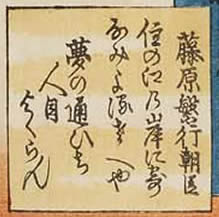 藤原敏行朝臣
住の江乃岸に寄
るなみよるさへや
夢の通ひち
人目
よくらん